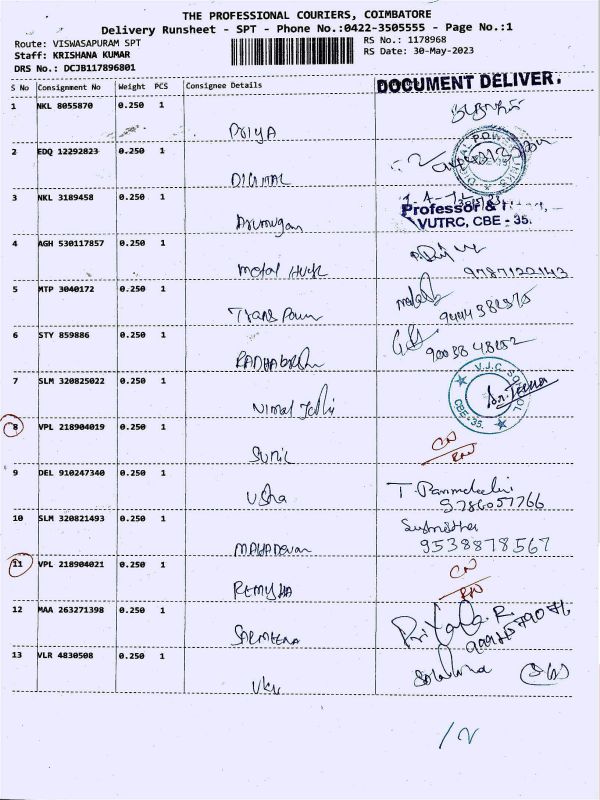 THE PROFESSIONAL COURIERS, COIMBATORE
Delivery Runsheet - SPT - Phone No.:0422-3505555 - Page No.:1
Route: VISWASAPURAM SPT RS No.: 1178968
Staff: KRISHANA KUMAR RS Date: 30-May-2023
DRS No.: DCJB117896801
DOCUMENT DELIVER.
S No Consignment No Weight PCS Consignee Details
1 NKL 8055870 0.250 1
PRIYA
2 EDQ 12292823 0.250 1
DIGITAL
3 NKL 3189458 0.250 1
Professor &
Arumugan VUTRC, CBE - 35.
4 AGH 530117857 0.250 1
9787122143
5 MTP 3040172 0.250 1
Trans
6 STY 859886 0.250 1
9003848252
7 SLM 320825022 0.250 1
V.J.C. SCHOOL
CBE-35.
8 VPL 218904019 0.250 1 CN
SUNIL RN
9 DEL 910247340 0.250 1
Usha 9786057766
10 SLM 320821493 0.250 1
MAHADEVAN 9538878567
11 VPL 218904021 0.250 1 CN
REMYHA RN
12 MAA 263271398 0.250 1
13 VLR 4830508 0.250 1